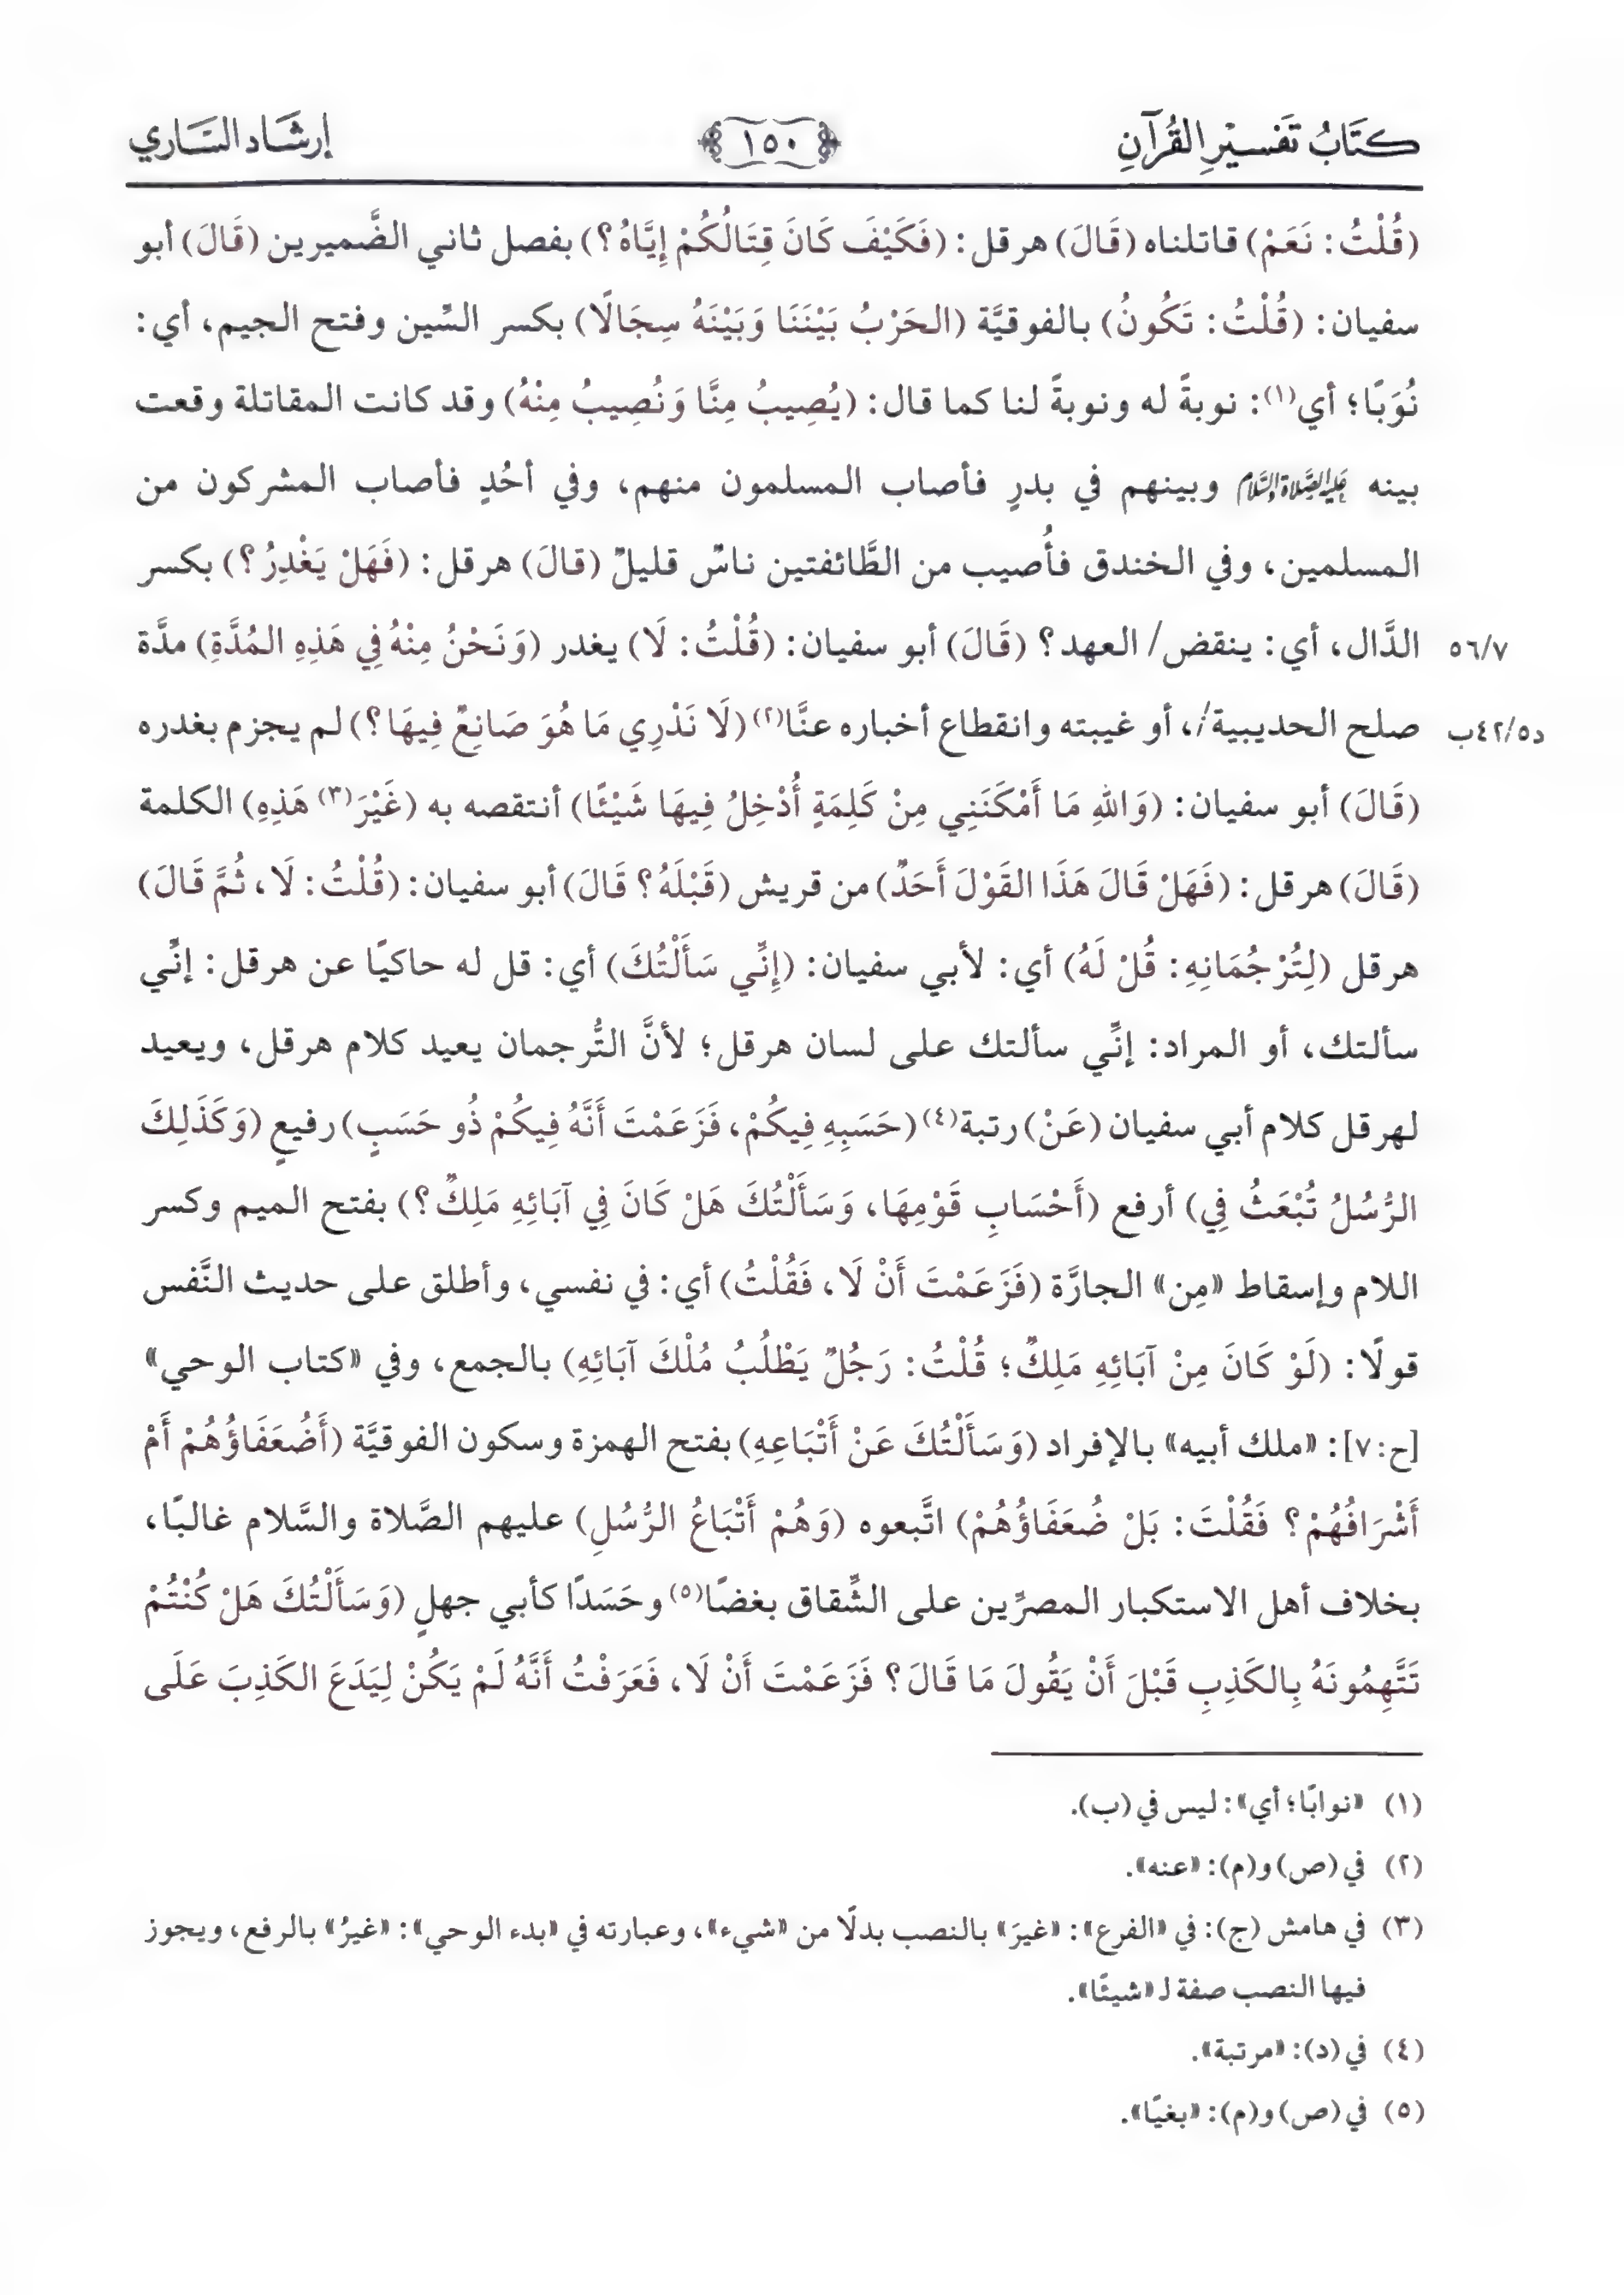 كِتَابُ تَفْسِيْرِ القُرْآنِ
١٥٠
إرشَاد السَّاري
(قُلْتُ: نَعَمْ) قاتلناه (قَالَ) هرقل: (فَكَيْفَ كَانَ قِتَالُكُمْ إِيَّاهُ؟) بفصل ثاني الضَّميرين (قَالَ) أبو
سفيان: (قُلْتُ: تَكُونُ) بالفوقيَّة (الحَرْبُ بَيْنَنَا وَبَيْنَهُ سِجَالًا) بكسر السِّين وفتح الجيم، أي:
نُوَبًا؛ أي(١): نوبةً له ونوبةً لنا كما قال: (يُصِيبُ مِنَّا وَنُصِيبُ مِنْهُ) وقد كانت المقاتلة وقعت
بينه عَلَيْهِ الصَّلَاة وَالسَّلَام وبينهم في بدرٍ فأصاب المسلمون منهم، وفي أحُدٍ فأصاب المشركون من
المسلمين، وفي الخندق فأُصيب من الطَّائفتين ناسٌ قليلٌ (قالَ) هرقل: (فَهَلْ يَغْدِرُ؟) بكسر
الدَّال، أي: ينقض/ العهد؟ (قَالَ) أبو سفيان: (قُلْتُ: لَا) يغدر (وَنَحْنُ مِنْهُ فِي هَذِهِ المُدَّةِ) مدَّة
٥٦/٧
صلح الحديبية/، أو غيبته وانقطاع أخباره عنَّا(٢) (لَا نَدْرِي مَا هُوَ صَانِعٌ فِيهَا؟) لم يجزم بغدره
د٤٢/٥ب
(قَالَ) أبو سفيان: (وَاللهِ مَا أَمْكَنَنِي مِنْ كَلِمَةٍ أُدْخِلُ فِيهَا شَيْئًا) أنتقصه به (غَيْرَ(٣) هَذِهِ) الكلمة
(قَالَ) هرقل: (فَهَلْ قَالَ هَذَا القَوْلَ أَحَدٌ) من قريش (قَبْلَهُ؟ قَالَ) أبو سفيان: (قُلْتُ: لَا، ثُمَّ قَالَ)
هرقل (لِتُرْجُمَانِهِ: قُلْ لَهُ) أي: لأبي سفيان: (إِنِّي سَأَلْتُكَ) أي: قل له حاكيًا عن هرقل: إنِّي
سألتك، أو المراد: إنِّي سألتك على لسان هرقل؛ لأنَّ التُّرجمان يعيد كلام هرقل، ويعيد
لهرقل كلام أبي سفيان (عَنْ) رتبة(٤) (حَسَبِهِ فِيكُمْ، فَزَعَمْتَ أَنَّهُ فِيكُمْ ذُو حَسَبٍ) رفيعٍ (وَكَذَلِكَ
الرُّسُلُ تُبْعَثُ فِي) أرفع (أَحْسَابِ قَوْمِهَا، وَسَأَلْتُكَ هَلْ كَانَ فِي آبَائِهِ مَلِكٌ؟) بفتح الميم وكسر
اللام وإسقاط «مِن» الجارَّة (فَزَعَمْتَ أَنْ لَا، فَقُلْتُ) أي: في نفسي، وأطلق على حديث النَّفس
قولًا: (لَوْ كَانَ مِنْ آبَائِهِ مَلِكٌ؛ قُلْتُ: رَجُلٌ يَطْلُبُ مُلْكَ آبَائِهِ) بالجمع، وفي «كتاب الوحي»
[ح:٧]: «ملك أبيه» بالإفراد (وَسَأَلْتُكَ عَنْ أَتْبَاعِهِ) بفتح الهمزة وسكون الفوقيَّة (أَضُعَفَاؤُهُمْ أَمْ
أَشْرَافُهُمْ؟ فَقُلْتَ: بَلْ ضُعَفَاؤُهُمْ) اتَّبعوه (وَهُمْ أَتْبَاعُ الرُّسُلِ) عليهم الصَّلاة والسَّلام غالبًا،
بخلاف أهل الاستكبار المصرِّين على الشِّقاق بغضًا(٥) وحَسَدًا كأبي جهلٍ (وَسَأَلْتُكَ هَلْ كُنْتُمْ
تَتَّهِمُونَهُ بِالكَذِبِ قَبْلَ أَنْ يَقُولَ مَا قَالَ؟ فَزَعَمْتَ أَنْ لَا، فَعَرَفْتُ أَنَّهُ لَمْ يَكُنْ لِيَدَعَ الكَذِبَ عَلَى
(١) «نوابًا؛ أي»: ليس في (ب).
(٢) في (ص) و(م): «عنه».
(٣) في هامش (ج): في «الفرع»: «غيرَ» بالنصب بدلًا من «شيء»، وعبارته في «بدء الوحي»: «غيرُ» بالرفع، ويجوز
فيها النصب صفة لـ «شيئًا».
(٤) في (د): «مرتبة».
(٥) في (ص) و(م): «بغيًا».